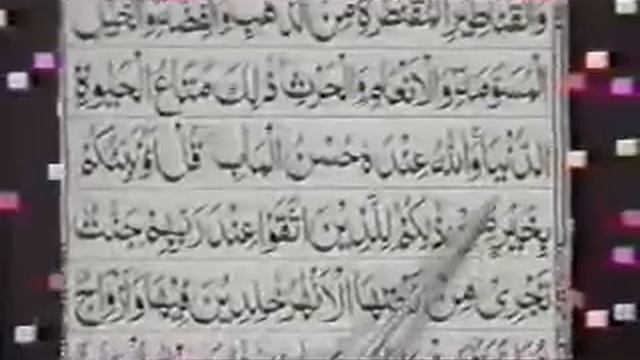 وَالْقَنَاطِيرِ الْمُقَنْطَرَةِ مِنَ الذَّهَبِ وَالْفِضَّةِ وَالْخَيْلِ
الْمُسَوَّمَةِ وَالْاَنْعَامِ وَالْحَرْثِ ذٰلِكَ مَتَاعُ الْحَيٰوةِ
الدُّنْيَا وَاللّٰهُ عِنْدَهٗ حُسْنُ الْمَاٰبِ قُلْ اَؤُنَبِّئُكُمْ
بِخَيْرٍ مِّنْ ذٰلِكُمْ لِلَّذِيْنَ اتَّقَوْا عِنْدَ رَبِّهِمْ جَنّٰتٌ
تَجْرِيْ مِنْ تَحْتِهَا الْاَنْهٰرُ خٰلِدِيْنَ فِيْهَا وَاَزْوَاجٌ